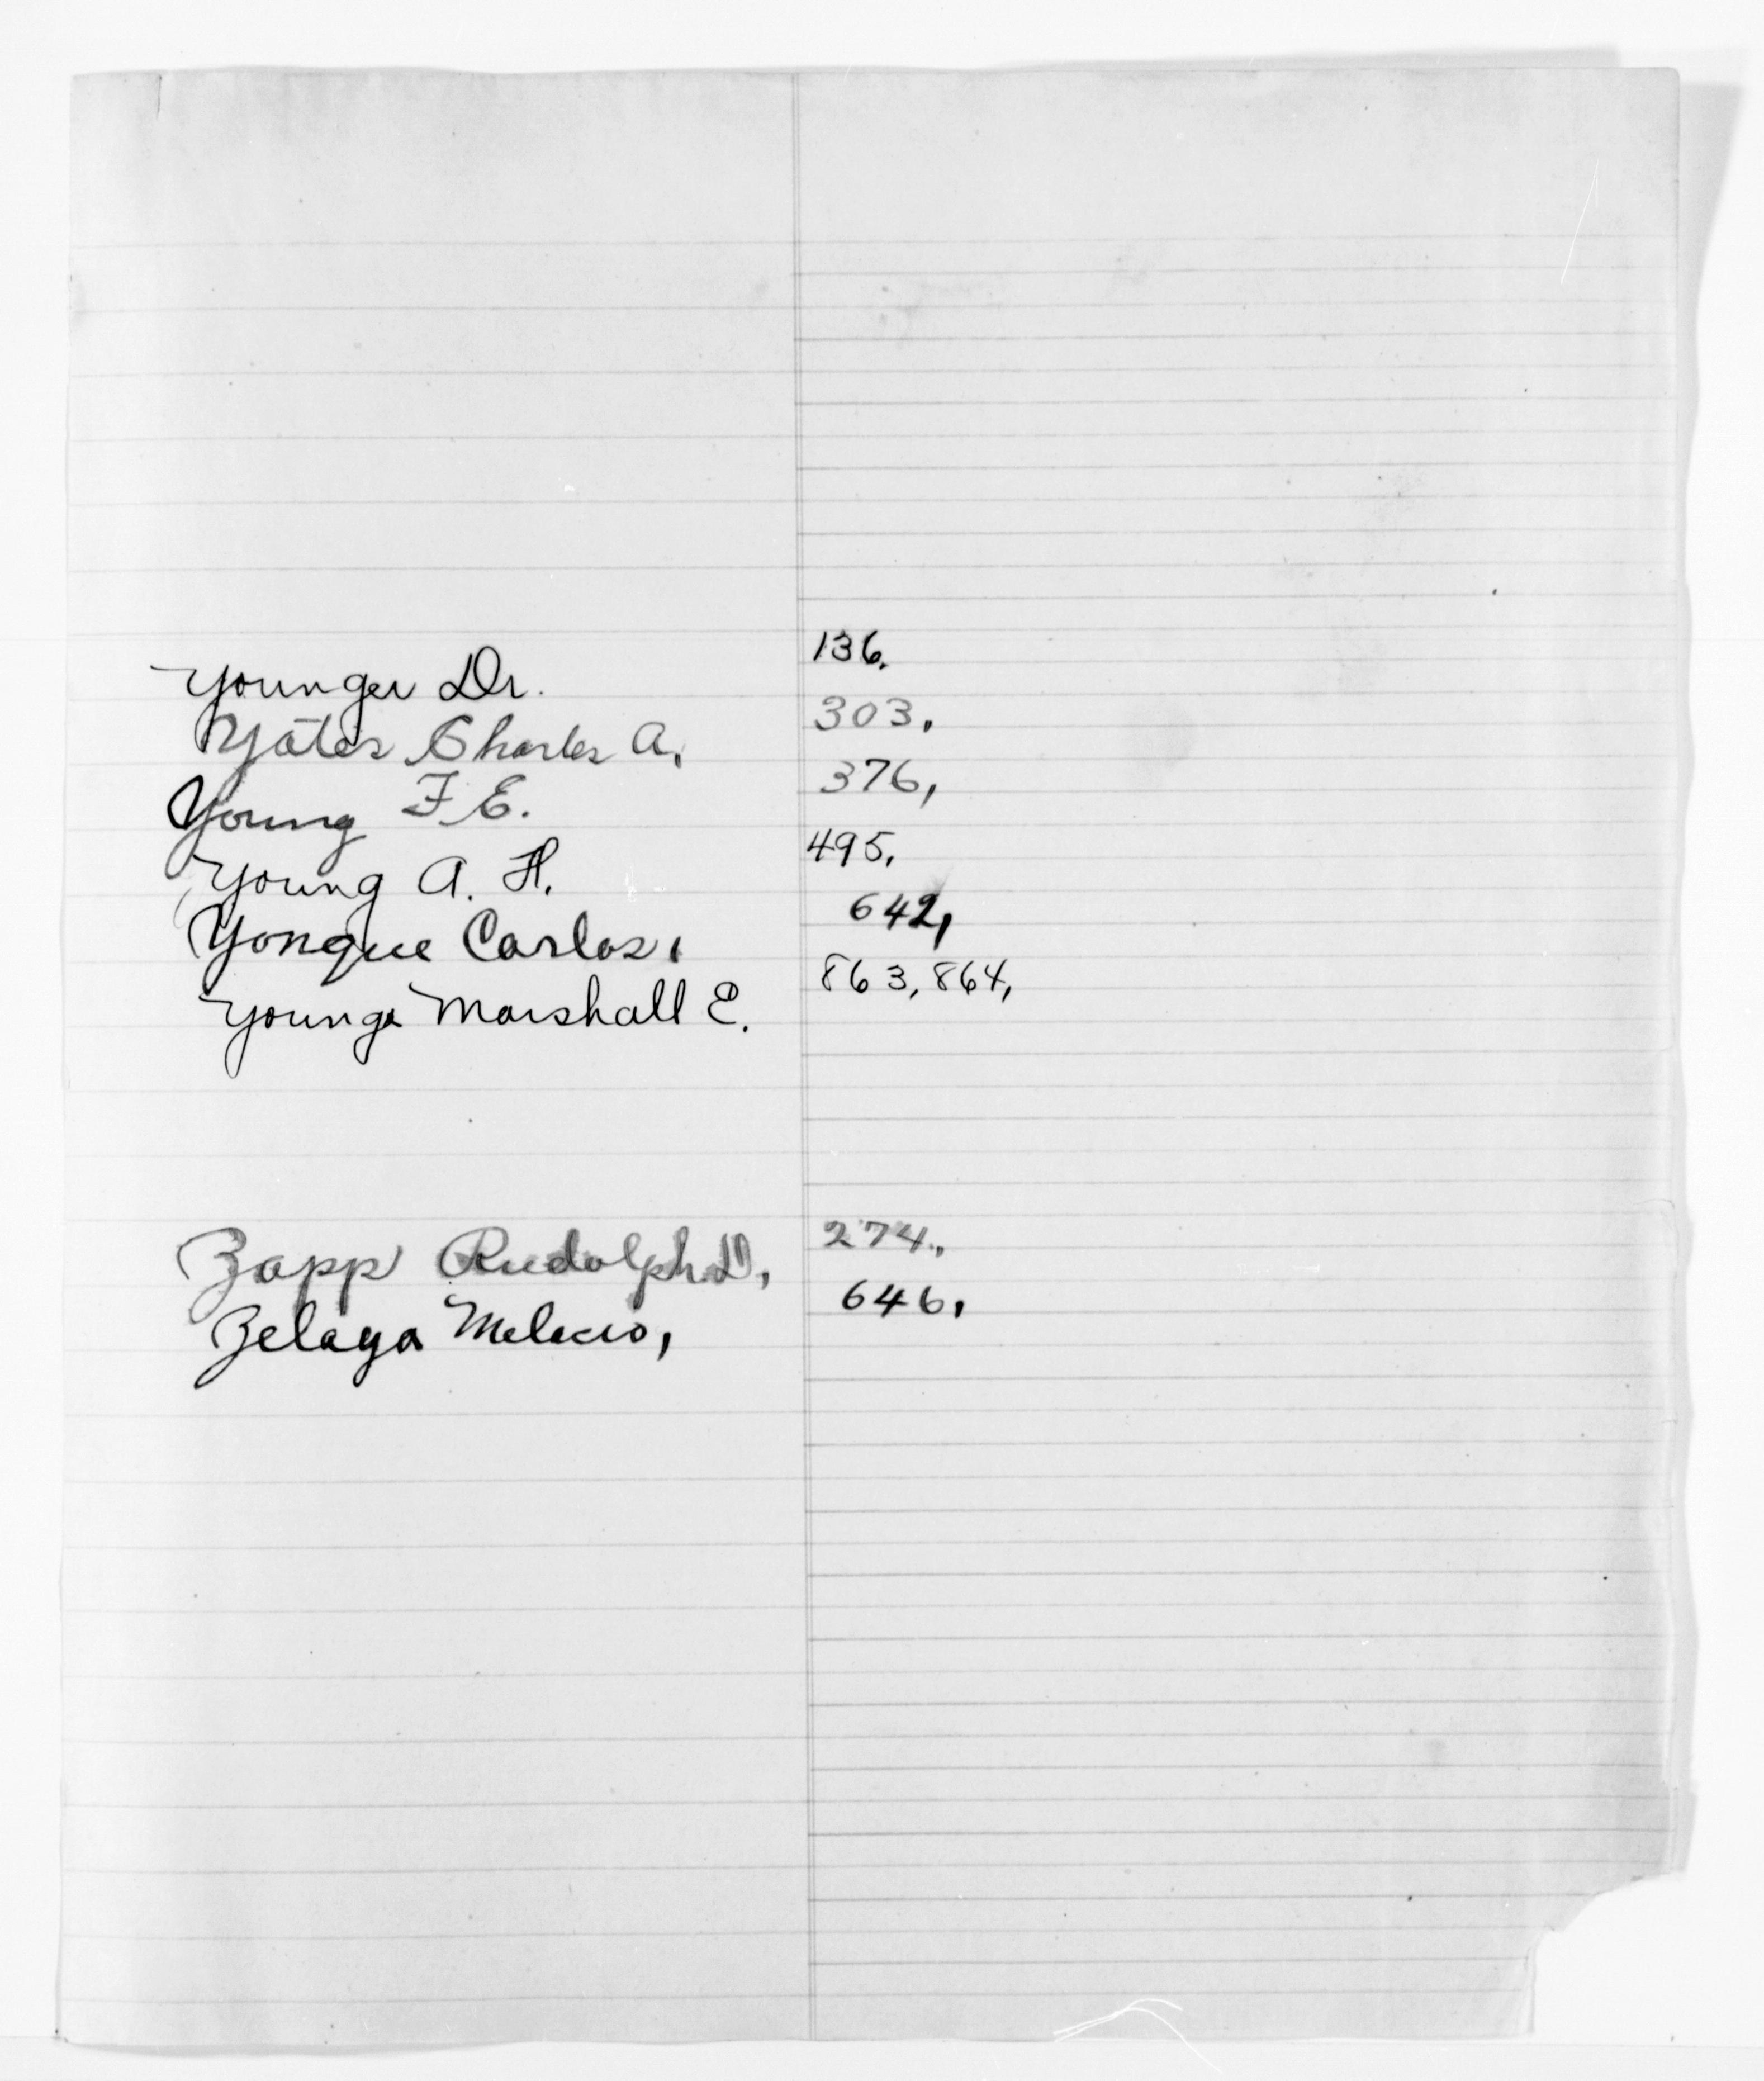 Younger Dr. 136.
Yates Charles A. 303.
Young F E. 376,
Young A. H. 495.
Yongue Carlos, 642,
Young Marshall E. 863, 864,
Zapp Rudolph D, 274.
Zelaya Melecio, 646,